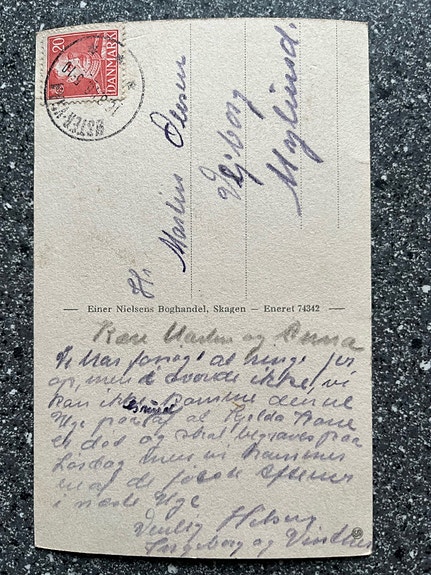 20
DANMARK
Hr. Martin Olesen
Vejborg
Einer Nielsens Boghandel, Skagen — Eneret 74342
Kære Martin og Anna
Vi har forsøgt at ringe jer
op, men i svarede ikke, vi
kan ikke komme denne
Uge paa
er død og skal begraves paa
Lørdag men vi kommer
en af de første Aftener
i næste Uge
Venlig Hilsen
Ingeborg og